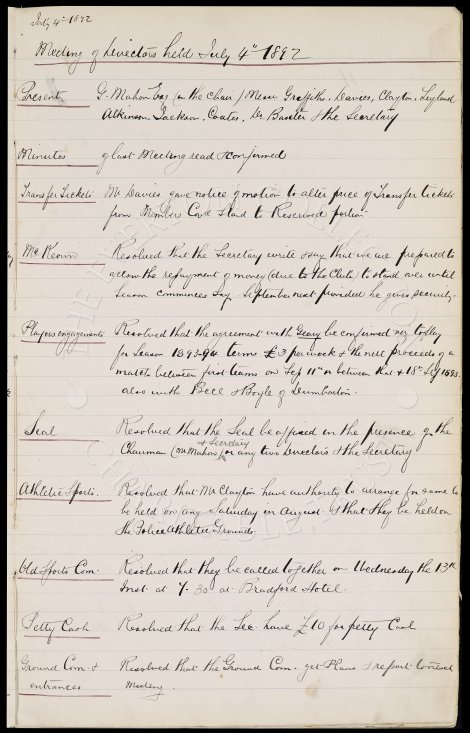 July 4th 1892
Meeting of Directors held July 4th 1892
Present G. Mahon Esq (in the chair) Messrs Griffiths, Davies, Clayton, Leyland
Atkinson, Jackson, Coates, Dr Baxter & the Secretary
Minutes of last Meeting read & confirmed
Transfer Tickets Mr Davies gave notice of motion to alter price of Transfer tickets
from Members Cov'd Stand to Reserved portion
McKeown Resolved that the Secretary write & say that we are prepared to
allow the repayment of money (due to the Club) to stand over until
Season commences say September next provided he gives security
Players engagements Resolved that the agreement with Geary be confirmed viz to play
for Season 1893-94 terms £3 per week & the nett proceeds of a
match between first teams on Sep 11th or between that & 18th Sep 1893
also with Bell & Boyle of Dumbarton.
Seal Resolved that the Seal be affixed in the presence of the
Chairman (Mr Mahon) & Secretary or any two Directors & the Secretary
Athletic Sports. Resolved that Mr Clayton have authority to arrange for same to
be held on any Saturday in August & that they be held on
the Police Athletic Grounds
Old Sports Com. Resolved that they be called together on Wednesday the 13th
Inst at 7.30 at Bradford Hotel.
Petty Cash Resolved that the Sec. have £10 for petty Cash
Ground Com & Resolved that the Ground Com. get Plans & report to next
entrances Meeting.